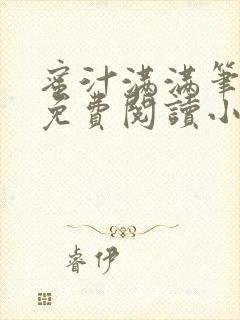 蜜汁满满筆
免費閱讀小
睿伊